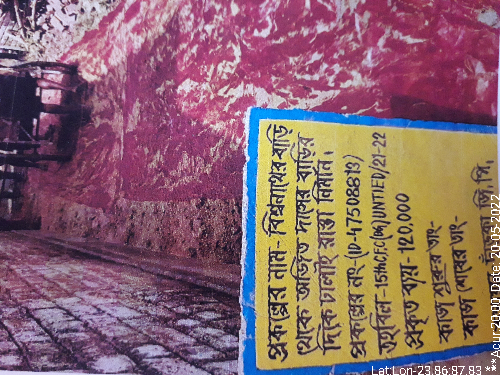 প্রকল্পের নাম- বিশ্বনাথের বাড়ি
থেকে অজিত দাসের বাড়ির
দিকে ঢালাই রাস্তা নির্মান।
প্রকল্পের নং-(ID-47508813)
তহবিল-15thCFC(BG)UNTIED/21-22
প্রকৃত ব্যয়- 120,000
কাজ শুরুর তাং-
কাজ শেষের তাং-
জি, পি,
Lat Lon-23.96:87.83
**Acur:2000 Date: 20-05-2022